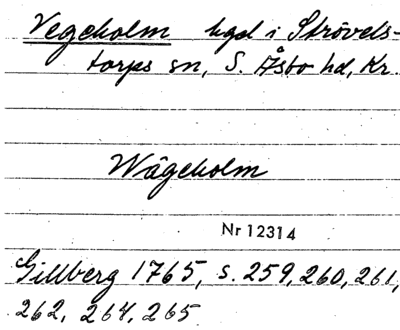 Vegeholm hgd i Strövels-
torps sn, S. Åsbo hd, Kr.
Wägeholm
Nr 12314
Gillberg 1765, s. 259, 260, 261,
262, 264, 265